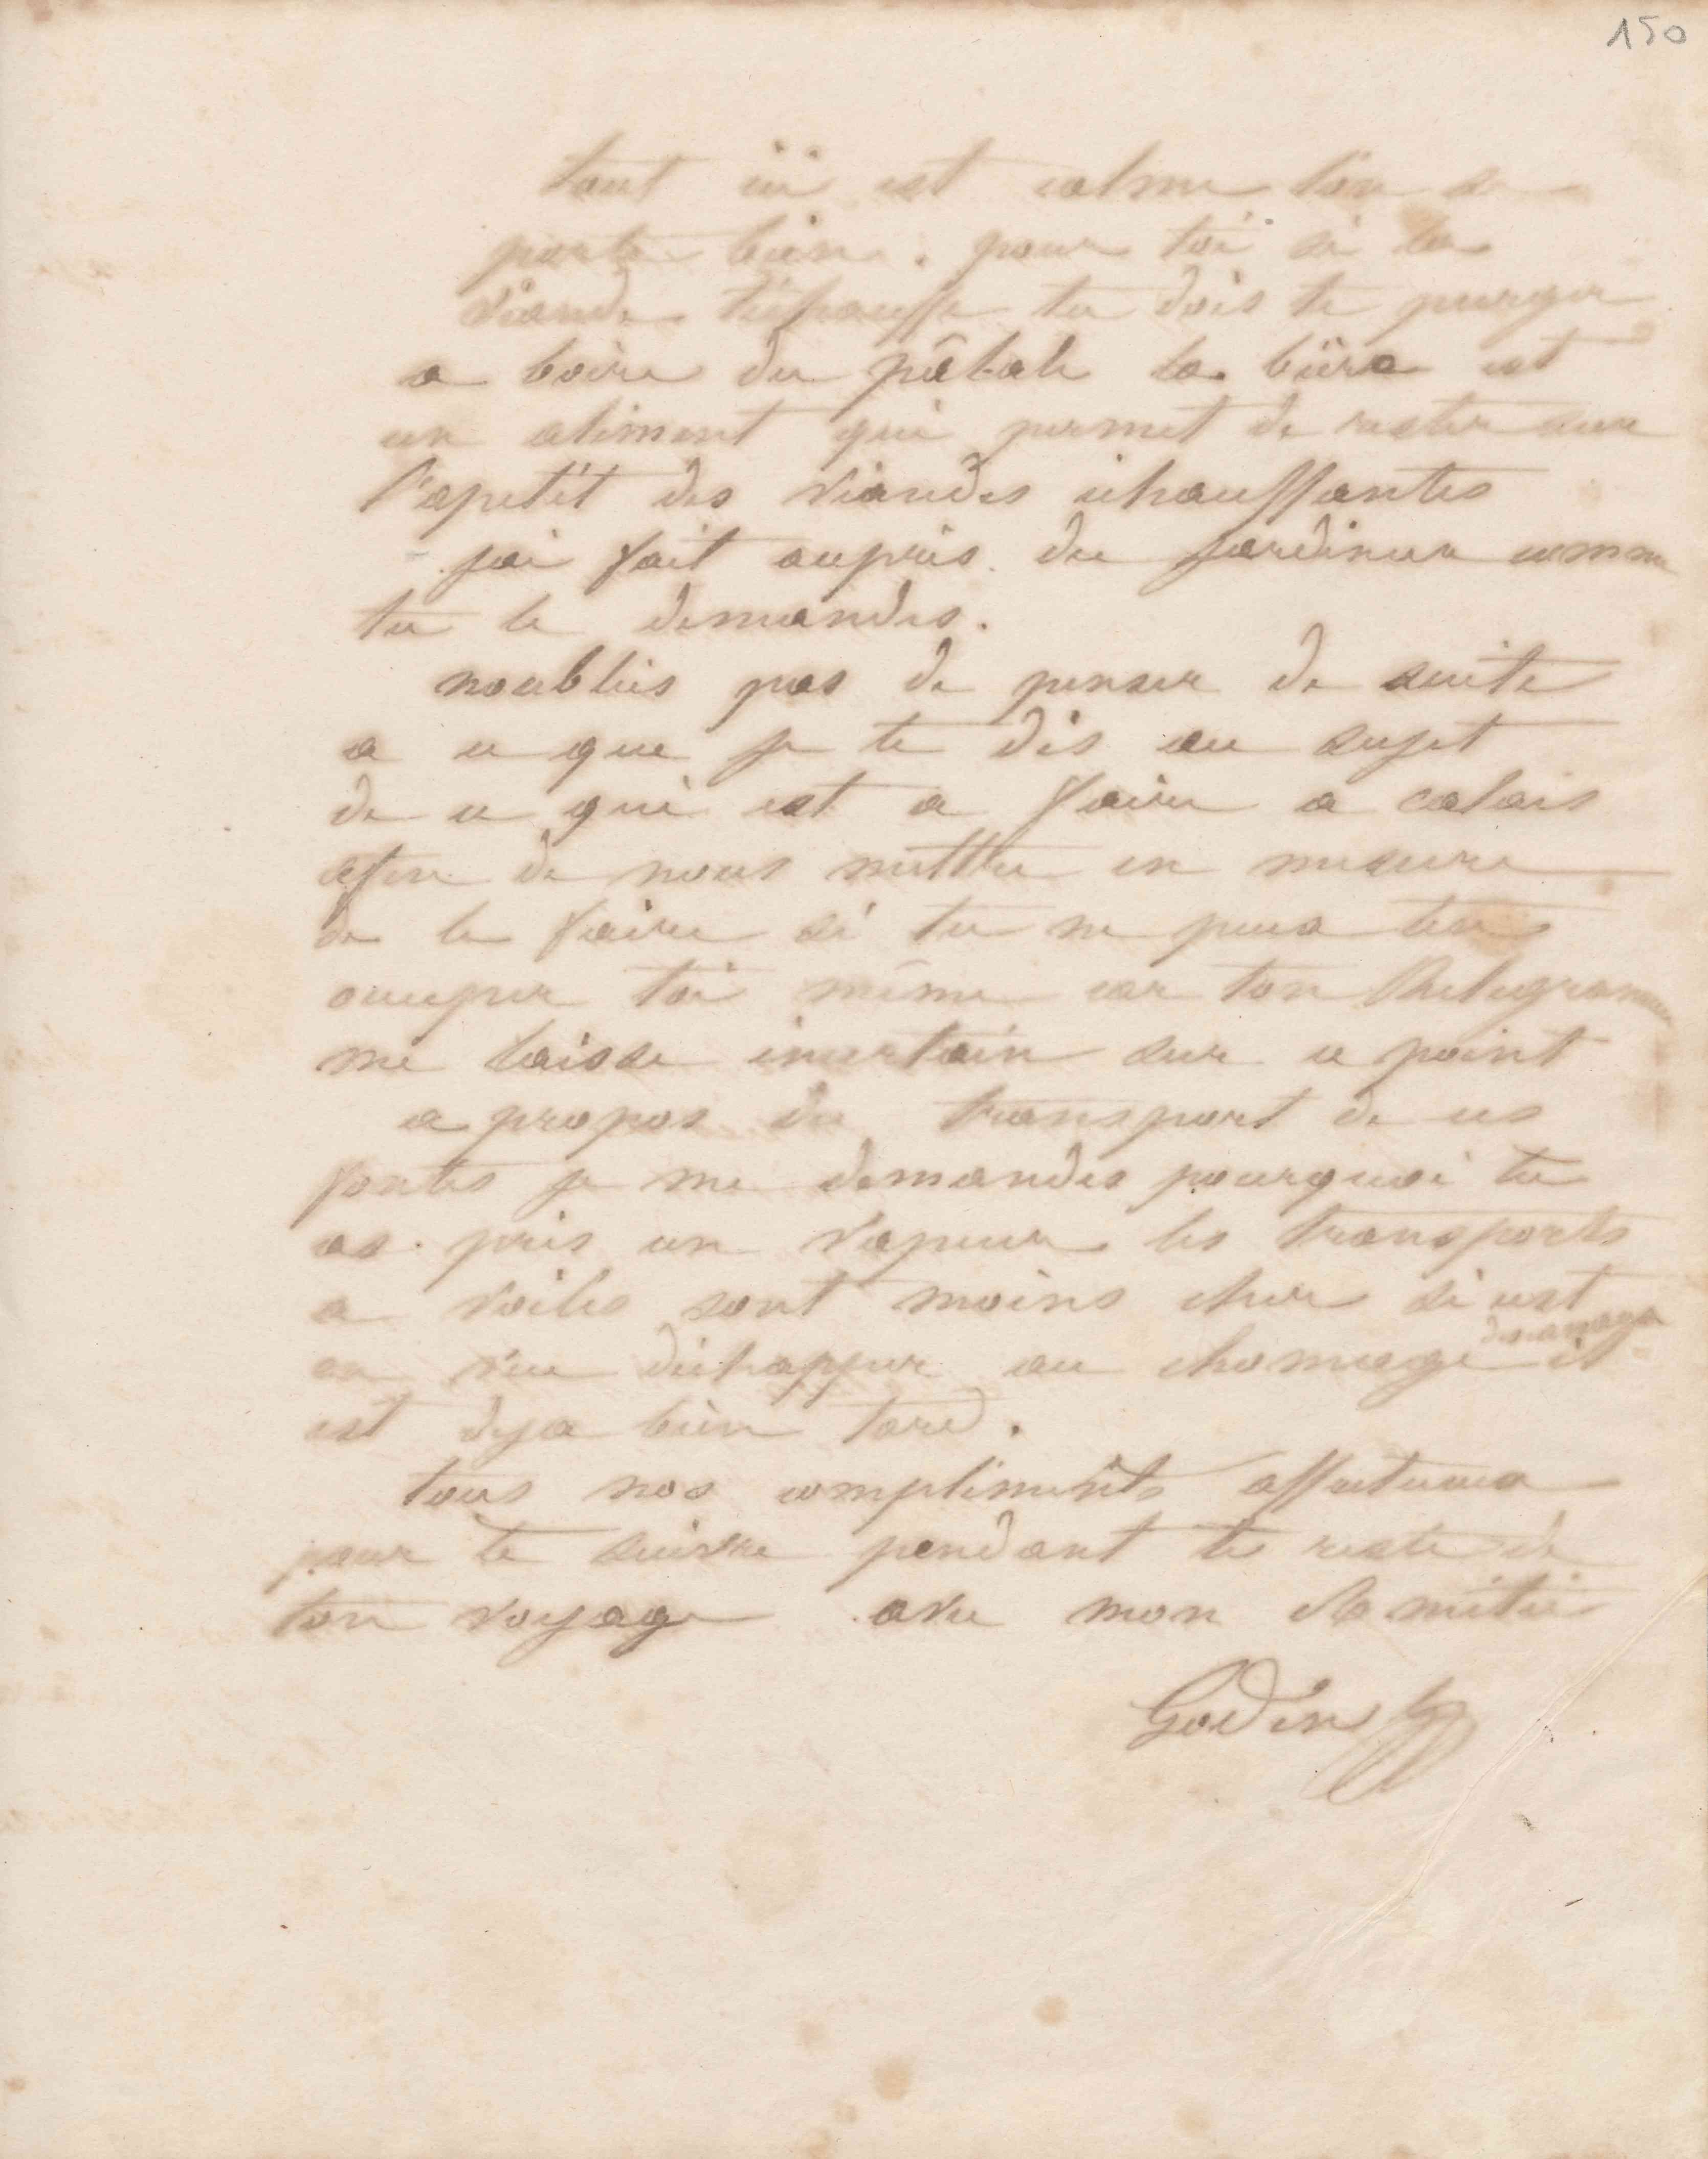 150
tout ici est calme l'on se
porte bien. pour toi si la
viande t'échauffe tu dois te purger
a boire du la bière est
un aliment qui permet de rester sur
l'apetit des viandes échauffantes
jai fait auprès du jardinier comme
tu le demandes.
noublies pas de penser de suite
a ce que je te dis au sujet
de ce qui est a faire a calais
afin de nous mettre en mesure
de le faire si tu ne peux t'en
occuper toi même car ton
me laisse incertain sur ce point
a propos du transport de ces
fontes je me demandes pourquoi tu
as pris un vapeur les transports
a voiles sont moins cher si c'est
en vue déchapper au chomage il
est deja bien tard.
tous nos compliments affectueux
pour te suivre pendant le reste de
ton voyage avec mon Amitié
Godin